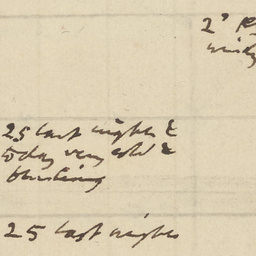 2°
windy
25 last night &
today very cold &
blustering
25 last night